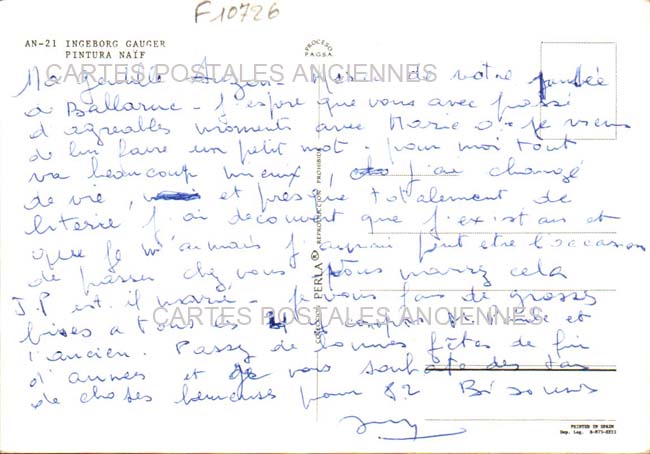 F10726
AN-21 INGEBORG GAUGER
PINTURA NAÏF
PROCESO
PAGSA
CARTES POSTALES ANCIENNES
Ma gentille Suzon - Merci de votre pensée
a Ballaruc - J'espere que vous avec passé
d'agréables moments avec Marie je viens
de lui faire un petit mot. pour moi tout
va beaucoup mieux, j'ai changé
de vie, et presque totalement de
literie j'ai decouvert que j'existais et
que je m'aimais j'aurai peut etre l'occasion
de passer chez vous vous marrez cela
J.P est il marié - je vous fais de grosses
bises a tous les 4 y compris et
l'ancien. Passez de bonnes fêtes de fin
d'années et je vous souhaite des tas
de choses heureuses pour 82 Bisous
CARTES POSTALES ANCIENNES
COLECCION PERLA®
REPRODUCCION PROHIBIDA
PRINTED IN SPAIN
Dep. Leg. B-M75-XXII